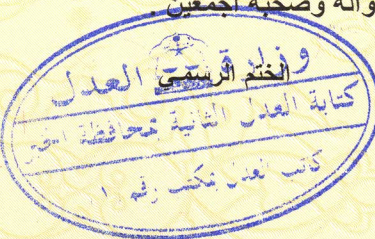 وآله وصحبه أجمعين .
الختم الرسمي
وزارة العدل
كتابة العدل الثانية بمحافظة الخبر
كاتب العدل بمكتب رقم ١